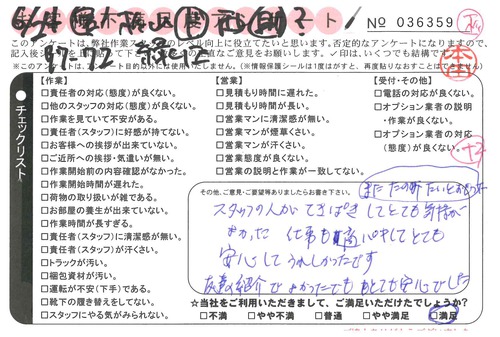 アンケート
№ 036359
このアンケートは、弊社作業スタッフのレベル向上に役立てたいと思います。否定的なアンケートになりますので、
記入後
と思います。✓印は、いくつでも結構です。
※このアンケートは、アンケート目的以外には使用いたしません。(※情報保護シールは1度はがすと、再度貼りなおすことはできません)
本
チェックリスト
【作業】
□責任者の対応(態度)が良くない。
□他のスタッフの対応(態度)が良くない。
□作業を見ていて不安がある。
□責任者(スタッフ)に好感が持てない。
□お客様への挨拶が出来ていない。
□ご近所への挨拶・気遣いが無い。
□作業開始前の内容確認がなかった。
□作業開始時間が遅れた。
□荷物の取り扱いが雑である。
□お部屋の養生が出来ていない。
□作業時間が長すぎる。
□責任者(スタッフ)に清潔感が無い。
□責任者(スタッフ)が汗くさい。
□トラックが汚い。
□梱包資材が汚い。
□運転が不安(下手)である。
□靴下の履き替えをしてない。
□スタッフにやる気がみられない。
【営業】
□見積もり時間に遅れた。
□見積もり時間が長い。
□営業マンに清潔感が無い。
□営業マンが煙草くさい。
□営業マンが汗くさい。
□営業態度が良くない。
□営業の説明と作業が一致してない。
【受付・その他】
□電話の対応が良くない。
□オプション業者の説明
・作業が良くない。
□オプション業者の対応
(態度)が良くない。
その他、ご意見・ご要望等ありましたらお書き下さい。
またたのみたいとおもった
スタッフの人がてきぱきしてとても気持が
よかった 仕事も
とても
安心してうれしかったです
友達の紹介でよかったでも とても安心でした
☆当社をご利用いただきまして、ご満足いただけたでしょうか?
□不満 □やや不満 □普通 □やや満足 □満足